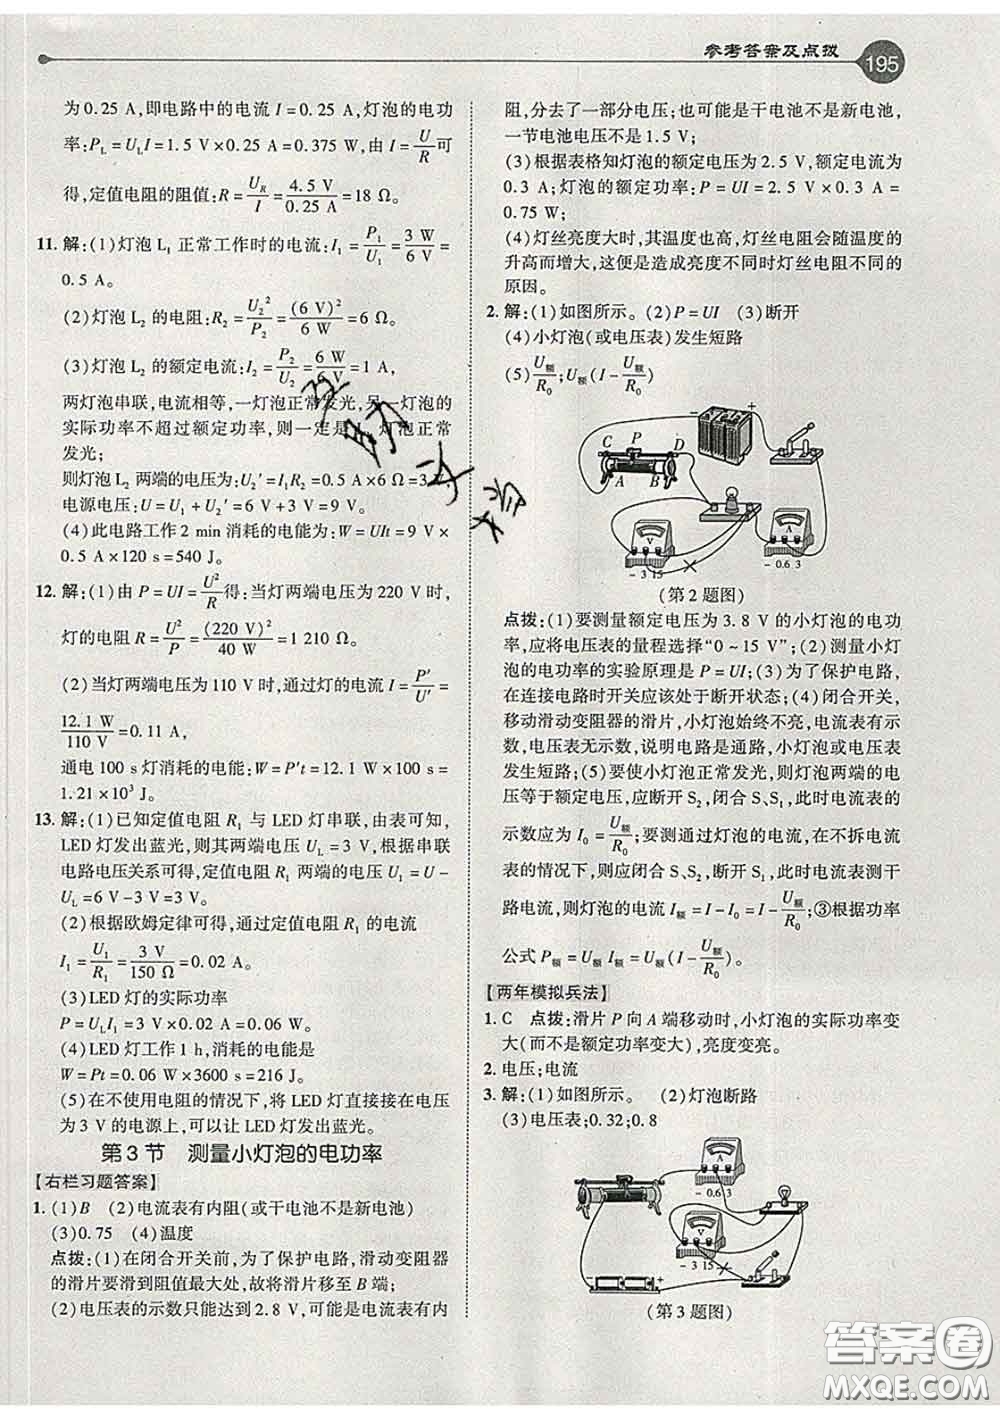 参考答案及点拨
195
为0.25 A,即电路中的电流 I = 0.25 A,灯泡的电功
率:P_L = U_L I = 1.5 V × 0.25 A = 0.375 W,由 I = U/R 可
得,定值电阻的阻值:R = U_R/I = 4.5 V/0.25 A = 18 Ω。
11. 解:(1)灯泡 L₁ 正常工作时的电流:I₁ = P₁/U₁ = 3 W/6 V =
0.5 A。
(2)灯泡 L₂ 的电阻:R₂ = U₂²/P₂ = (6 V)²/6 W = 6 Ω。
(3)灯泡 L₂ 的额定电流:I₂ = P₂/U₂ = 6 W/6 V = 1 A,
两灯泡串联,电流相等,一灯泡正常发光,另一灯泡的
实际功率不超过额定功率,则一定是 L₁ 灯泡正常
发光;
则灯泡 L₂ 两端的电压为:U₂′ = I₁R₂ = 0.5 A × 6 Ω = 3 V,
电源电压:U = U₁ + U₂′ = 6 V + 3 V = 9 V。
(4)此电路工作 2 min 消耗的电能为:W = UIt = 9 V ×
0.5 A × 120 s = 540 J。
12. 解:(1)由 P = UI = U²/R 得:当灯两端电压为 220 V 时,
灯的电阻 R = U²/P = (220 V)²/40 W = 1 210 Ω。
(2)当灯两端电压为 110 V 时,通过灯的电流 I = P′/U′ =
12.1 W/110 V = 0.11 A,
通电 100 s 灯消耗的电能:W = P′t = 12.1 W × 100 s =
1.21 × 10³ J。
13. 解:(1)已知定值电阻 R₁ 与 LED 灯串联,由表可知,
LED 灯发出蓝光,则其两端电压 U_L = 3 V,根据串联
电路电压关系可得,定值电阻 R₁ 两端的电压 U₁ = U −
U_L = 6 V − 3 V = 3 V。
(2)根据欧姆定律可得,通过定值电阻 R₁ 的电流
I₁ = U₁/R₁ = 3 V/150 Ω = 0.02 A。
(3)LED 灯的实际功率
P = U_L I₁ = 3 V × 0.02 A = 0.06 W。
(4)LED 灯工作 1 h,消耗的电能是
W = Pt = 0.06 W × 3600 s = 216 J。
(5)在不使用电阻的情况下,将 LED 灯直接接在电压
为 3 V 的电源上,可以让 LED 灯发出蓝光。
第 3 节 测量小灯泡的电功率
【右栏习题答案】
1. (1)B (2)电流表有内阻(或干电池不是新电池)
(3)0.75 (4)温度
点拨:(1)在闭合开关前,为了保护电路,滑动变阻器
的滑片要滑到阻值最大处,故将滑片移至 B 端;
(2)电压表的示数只能达到 2.8 V,可能是电流表有内
阻,分去了一部分电压;也可能是干电池不是新电池,
一节电池电压不是 1.5 V;
(3)根据表格知灯泡的额定电压为 2.5 V,额定电流为
0.3 A;灯泡的额定功率:P = UI = 2.5 V × 0.3 A =
0.75 W;
(4)灯丝亮度大时,其温度也高,灯丝电阻会随温度的
升高而增大,这便是造成亮度不同时灯丝电阻不同的
原因。
2. 解:(1)如图所示。 (2)P = UI (3)断开
(4)小灯泡(或电压表)发生短路
(5)U额/R₀;U额(I − U额/R₀)
− +
C P D
A B
A
V
− 3 15
− 0.6 3
(第 2 题图)
点拨:(1)要测量额定电压为 3.8 V 的小灯泡的电功
率,应将电压表的量程选择“0 ~ 15 V”;(2)测量小灯
泡的电功率的实验原理是 P = UI;(3)为了保护电路,
在连接电路时开关应该处于断开状态;(4)闭合开关,
移动滑动变阻器的滑片,小灯泡始终不亮,电流表有示
数,电压表无示数,说明电路是通路,小灯泡或电压表
发生短路;(5)要使小灯泡正常发光,则灯泡两端的电
压等于额定电压,应断开 S₂,闭合 S、S₁,此时电流表的
示数应为 I₀ = U额/R₀;要测通过灯泡的电流,在不拆电流
表的情况下,则应闭合 S、S₂,断开 S₁,此时电流表测干
路电流,则灯泡的电流 I额 = I − I₀ = I − U额/R₀;③根据功率
公式 P额 = U额 I额 = U额(I − U额/R₀)。
【两年模拟兵法】
1. C 点拨:滑片 P 向 A 端移动时,小灯泡的实际功率变
大(而不是额定功率变大),亮度变亮。
2. 电压;电流
3. 解:(1)如图所示。 (2)灯泡断路
(3)电压表;0.32;0.8
A
− 0.6 3
V
− 3 15
− +
(第 3 题图)
答案卷
MXQE.COM